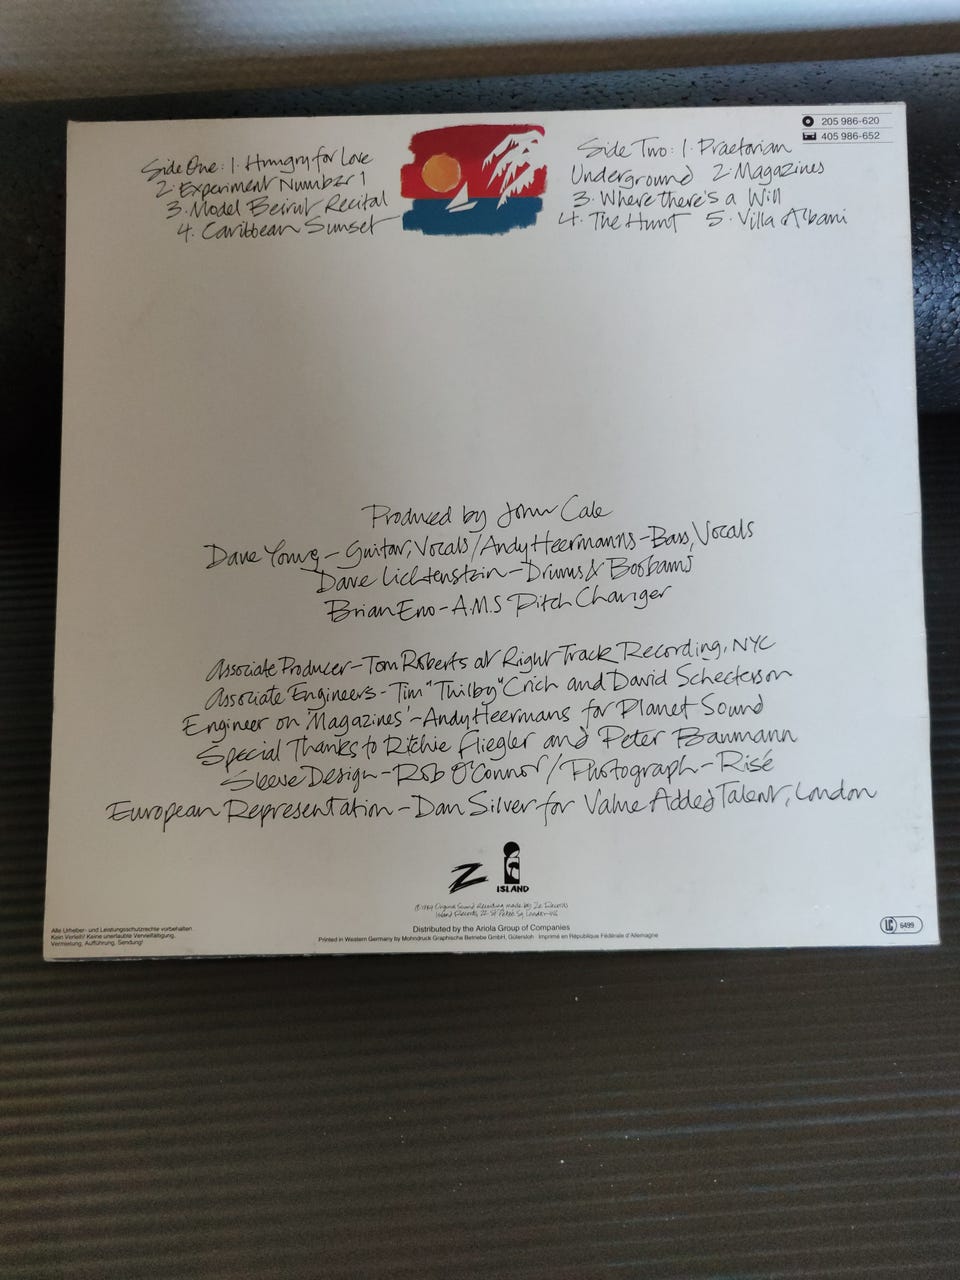 Side One: 1. Hungry for Love
2. Experiment Number 1
3. Model Beirut Recital
4. Caribbean Sunset
Side Two: 1. Praetorian
Underground 2. Magazines
3. Where there's a Will
4. The Hunt 5. Villa Albani
205 986-620
405 986-652
Produced by John Cale
Dave Young - Guitar, Vocals / Andy Heermanns - Bass, Vocals
Dave Lichtenstein - Drums & Boobams
Brian Eno - A.M.S Pitch Changer
Associate Producer - Tom Roberts at Right Track Recording, NYC
Associate Engineers - Tim "Thilby" Crich and David Schecterson
Engineer on 'Magazines' - Andy Heermans for Planet Sound
Special Thanks to Ritchie Fliegler and Peter Baumann
Sleeve Design - Rob O'Connor / Photograph - Risé
European Representation - Dan Silver for Value Added Talent, London
Z
ISLAND
℗ 1984 Original Sound Recording made by Ze Records
Island Records, 22 St Peters Sq, London W6
Distributed by the Ariola Group of Companies
Printed in Western Germany by Mohndruck Graphische Betriebe GmbH, Gütersloh · Imprimé en République Fédérale d'Allemagne
Alle Urheber- und Leistungsschutzrechte vorbehalten.
Kein Verleih! Keine unerlaubte Vervielfältigung,
Vermietung, Aufführung, Sendung!
LC 6499